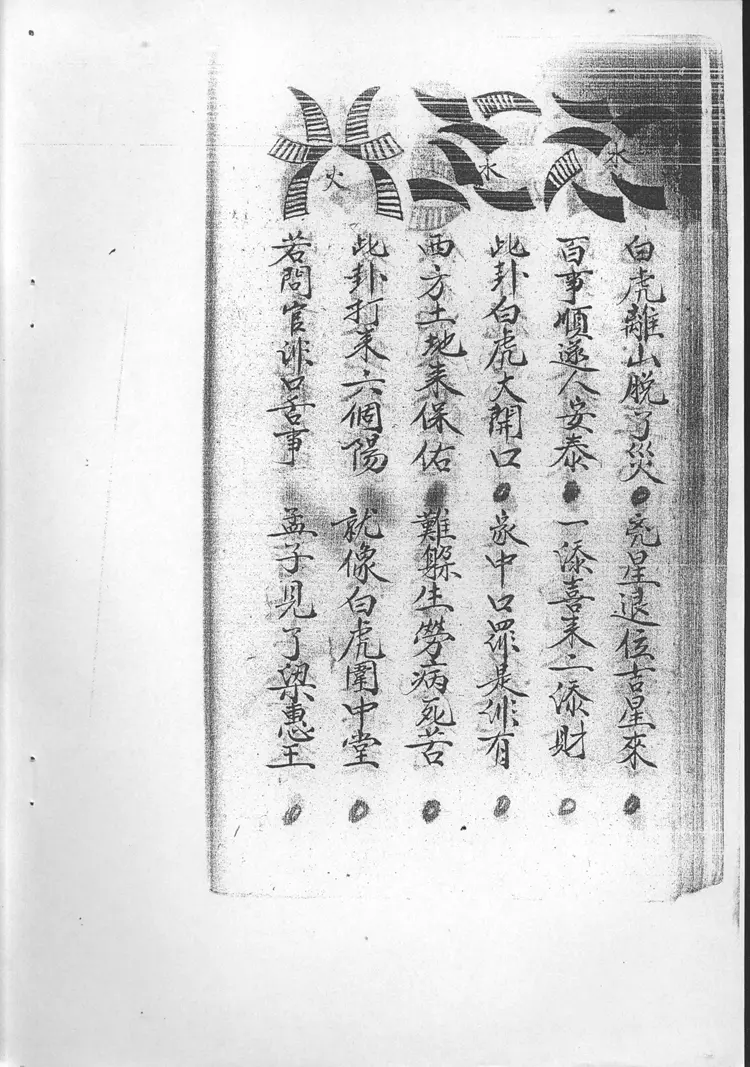 水
水
火
白虎離山脱了災 兇星退位吉星來
百事順遂人安泰 一添喜来二添財
此卦白虎大開口 家中口罪是非有
西方土地来保佑 難躲生勞病死苦
此卦打来六個陽 就像白虎圍中堂
若問官非口舌事 孟子見了梁惠王